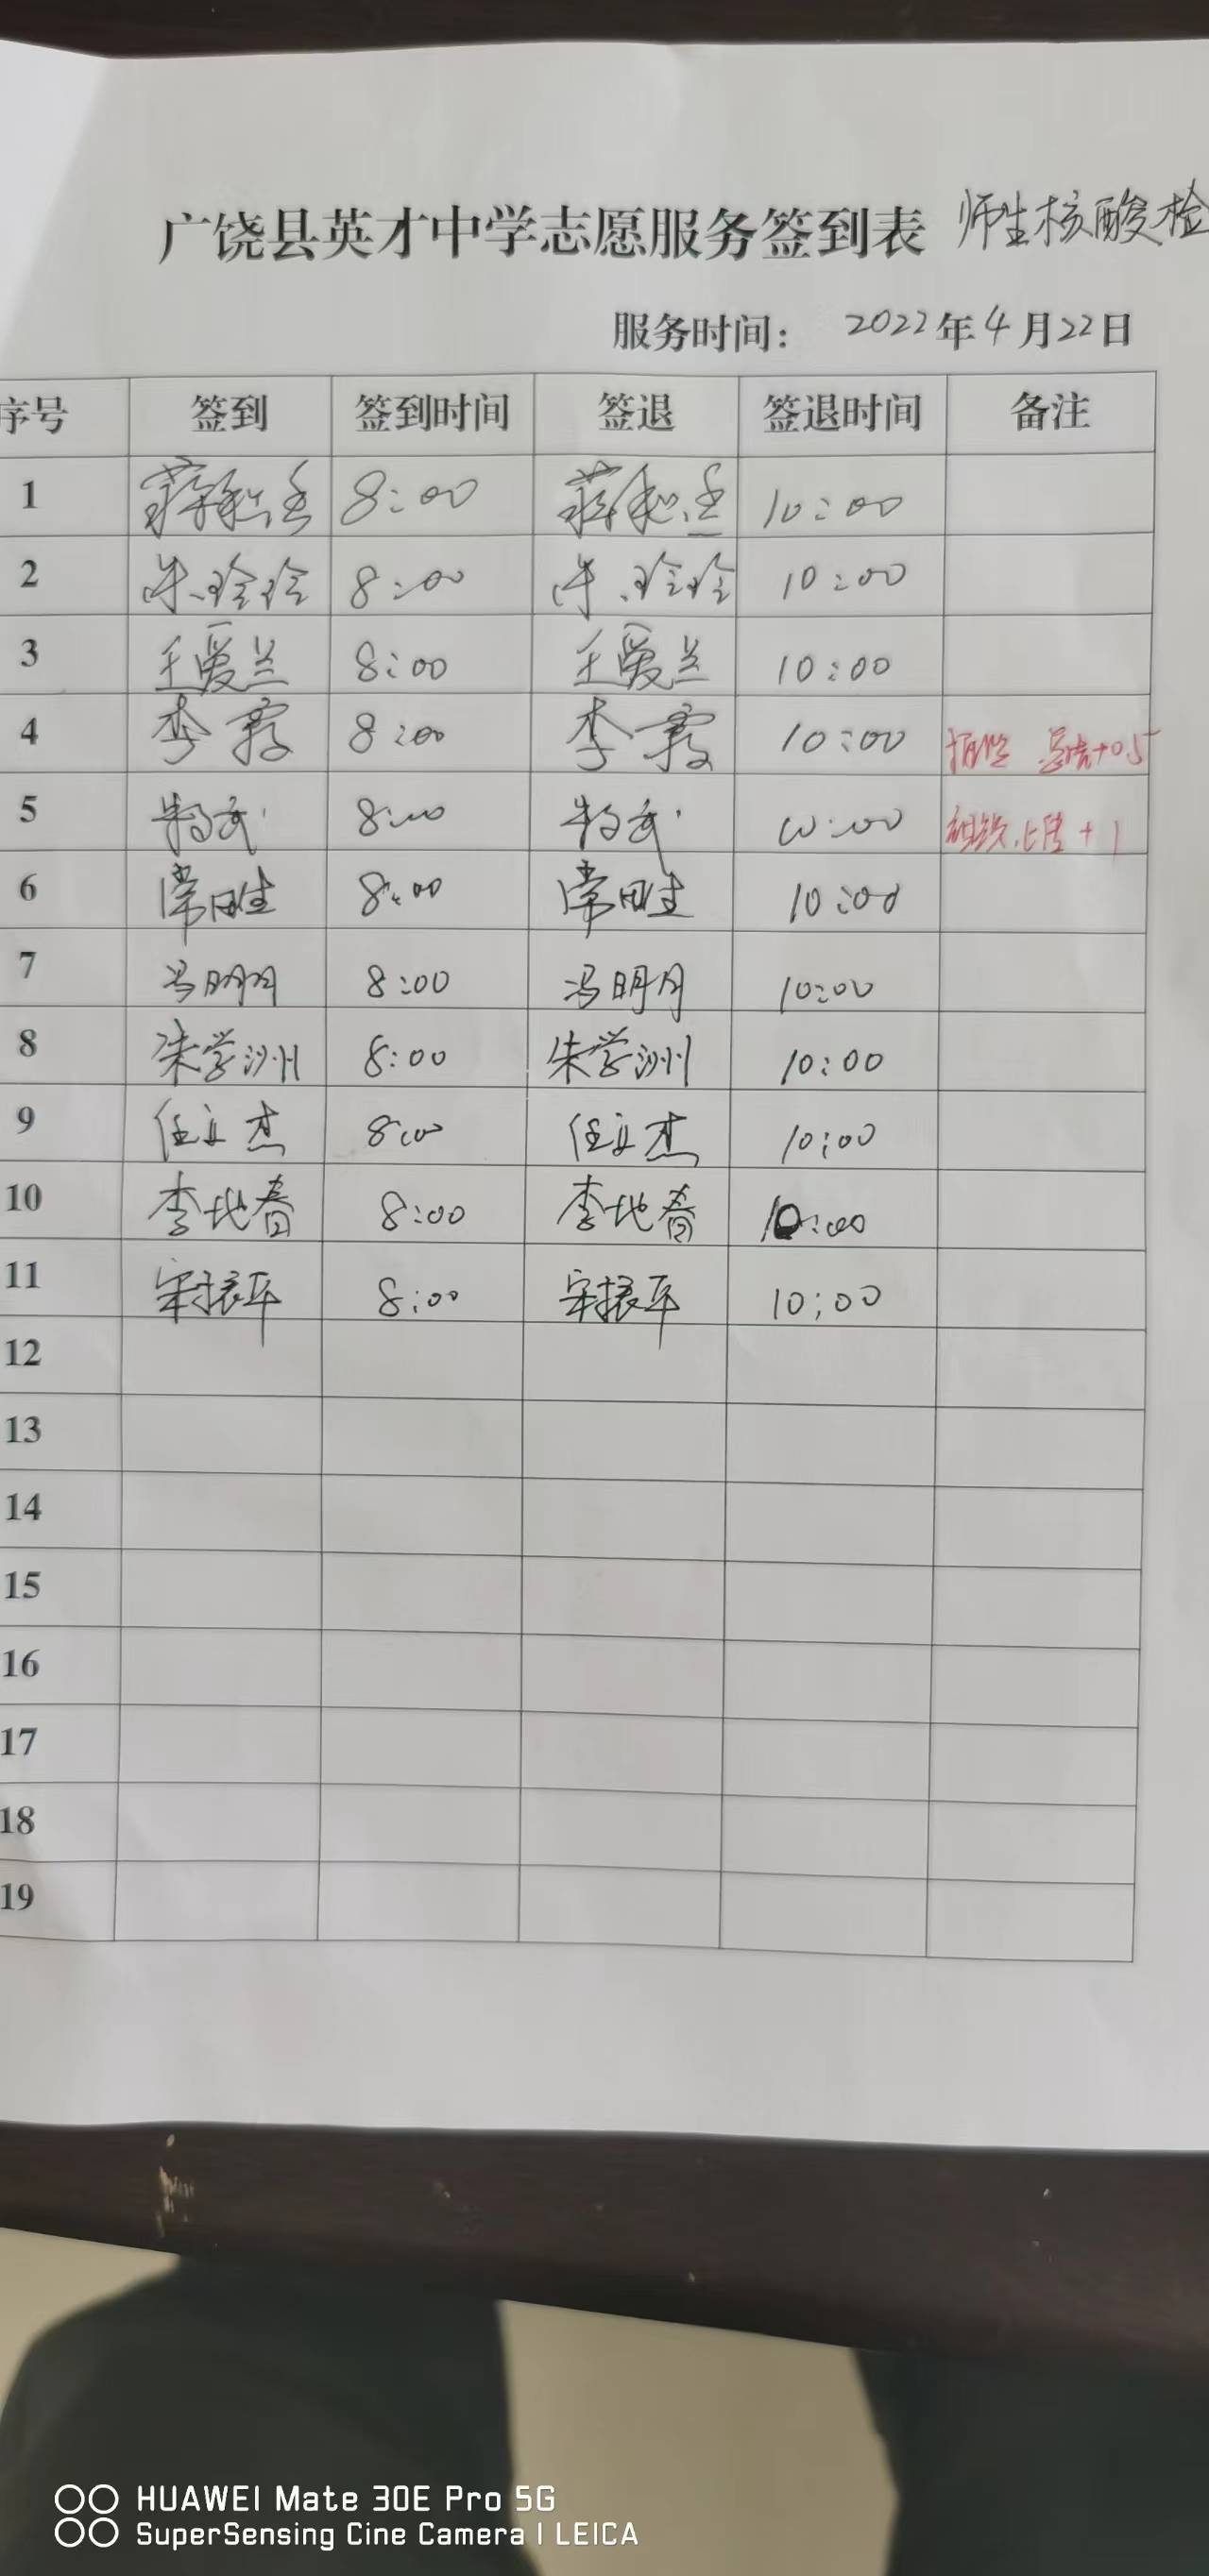 广饶县英才中学志愿服务签到表 师生核酸检
服务时间： 2022年4月22日
序号 签到 签到时间 签退 签退时间 备注
1 8:00 10:00
2 朱玲玲 8:00 朱玲玲 10:00
3 王爱兰 8:00 王爱兰 10:00
4 李霞 8:00 李霞 10:00 +0.5
5 8:00 10:00 +1
6 常胜 8:00 常胜 10:00
7 冯明月 8:00 冯明月 10:00
8 朱学洲 8:00 朱学洲 10:00
9 任立杰 8:00 任立杰 10:00
10 李地春 8:00 李地春 10:00
11 宋振平 8:00 宋振平 10:00
12
13
14
15
16
17
18
19
HUAWEI Mate 30E Pro 5G
SuperSensing Cine Camera | LEICA